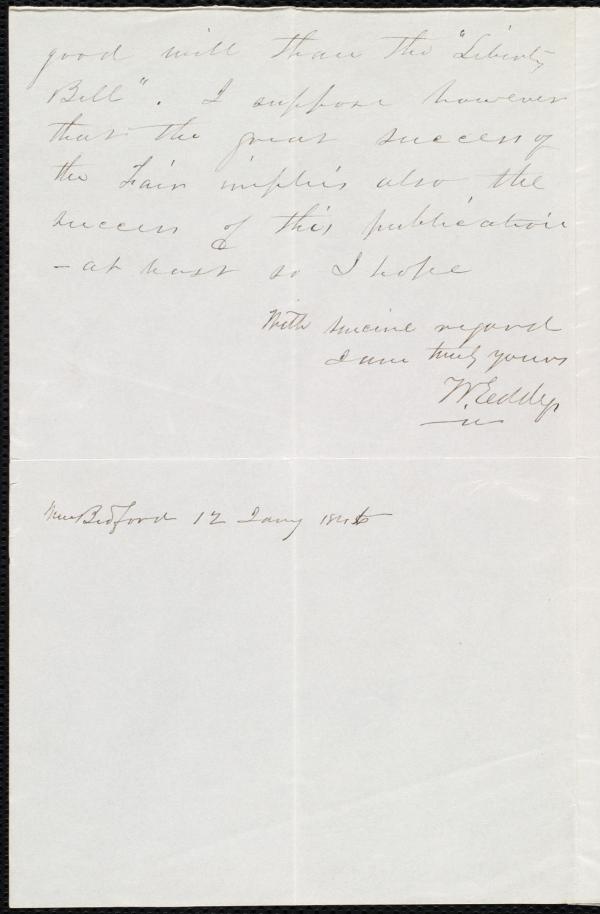 good will than the "Liberty
Bell". I suppose however
that the great success of
the Fair implies also the
success of this publication
- at least so I hope
With sincere regard
I am truly yours
W. Eddy
New Bedford 12 Jany 1846